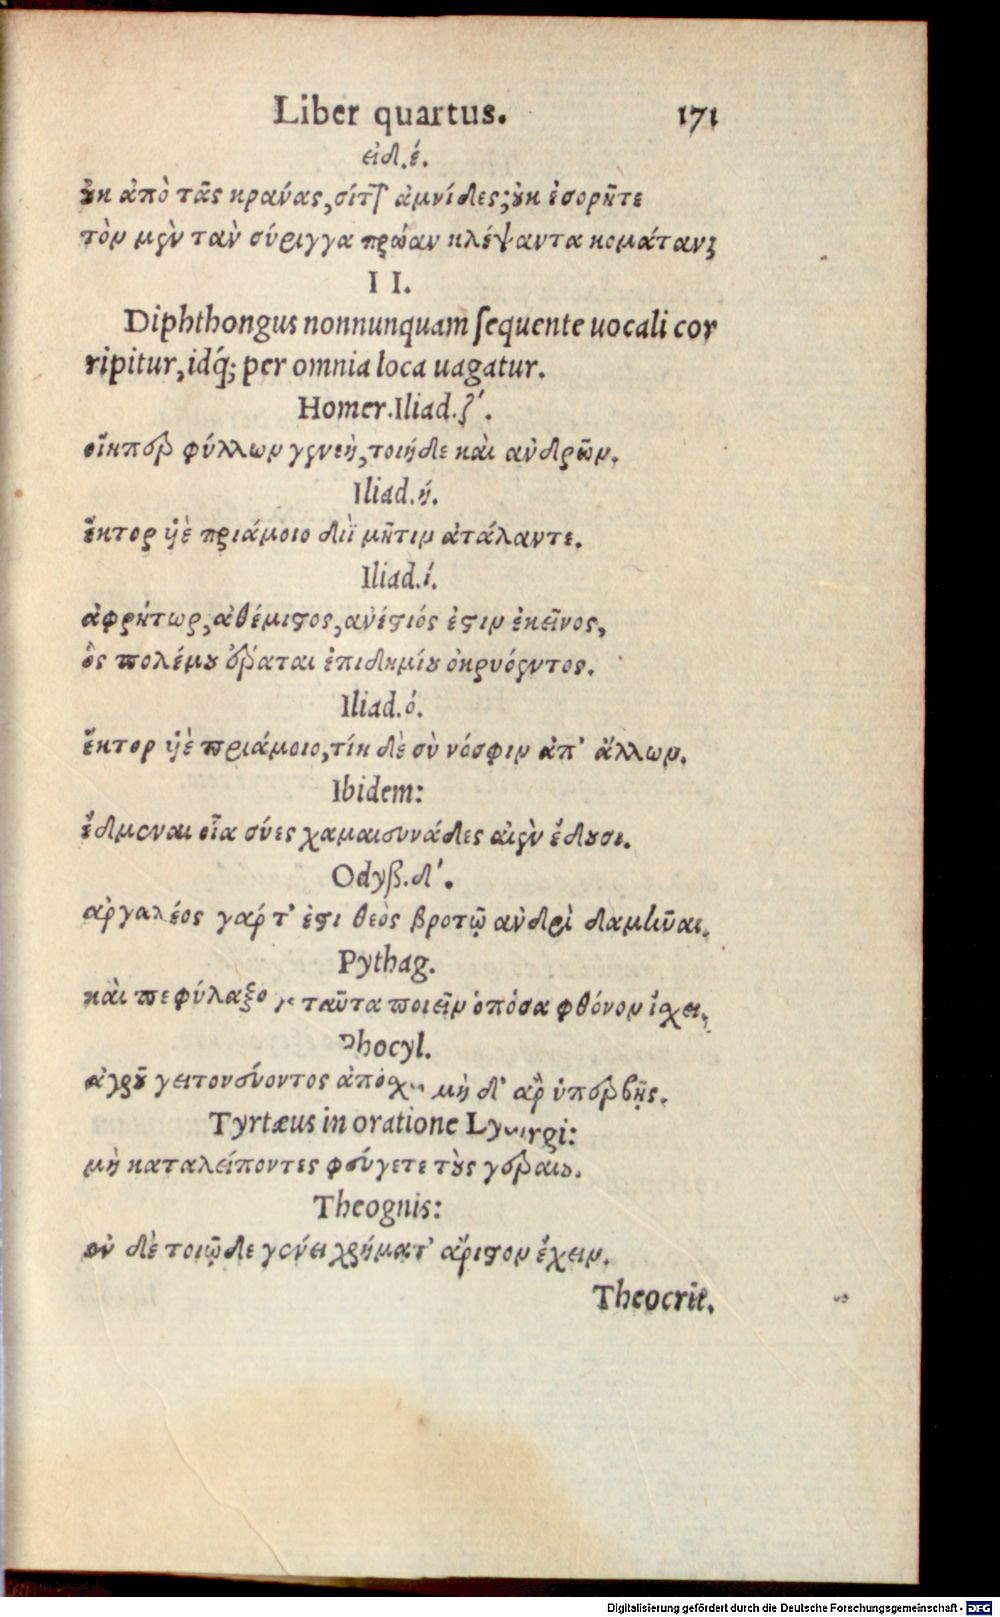 Liber quartus. 171
εἰδ. έ.
ȣ̓κ ἀπὸ τᾶς κράνας, σίττ' ἀμνίδες; ȣ̓κ ἐσορῆτε
τὸν μεὺν τὰν σύριγγα πρώαν κλέψαντα κομάταν;
II.
Diphthongus nonnunquam ſequente uocali cor
ripitur, idq́; per omnia loca uagatur.
Homer. Iliad. ζ'.
οἵηπερ φύλλων γενεὴ, τοιήδε καὶ ἀνδρῶν.
Iliad. ή.
ἕκτορ ὑιὲ πριάμοιο διῒ μῆτιν ἀτάλαντε.
Iliad. ί.
ἀφρήτωρ, ἀθέμιστος, ἀνέστιός ἐστιν ἐκεῖνος,
ὃς πολέμȣ ἔραται ἐπιδημίȣ ὀκρυόεντος.
Iliad. ό.
ἕκτορ ὑιὲ πριάμοιο, τίη δὲ σὺ νόσφιν ἀπ' ἄλλων.
Ibidem:
ἔδμεναι οἷα σύες χαμαιευνάδες αἰὲν ἔδȣσι.
Odyß. δ'.
ἀργαλέος γάρ τ' ἐστὶ θεὸς βροτῷ ἀνδρὶ δαμῆναι.
Pythag.
καὶ πεφύλαξο γε ταῦτα ποιεῖν ὁπόσα φθόνον ἴσχει.
Phocyl.
ἀγρȣ͂ γειτονεύοντος ἀπόσχȣ μὴ δ' ἄρ ὑπερβῇς.
Tyrtæus in oratione Lycurgi:
μὴ καταλείποντες φεύγετε τȣ̀ς γεραιȣ́.
Theognis:
ὀν δὲ τοιῷδε γένει χρήματ' ἄριστον ἔχειν.
Theocrit.
Digitalisierung gefördert durch die Deutsche Forschungsgemeinschaft - DFG